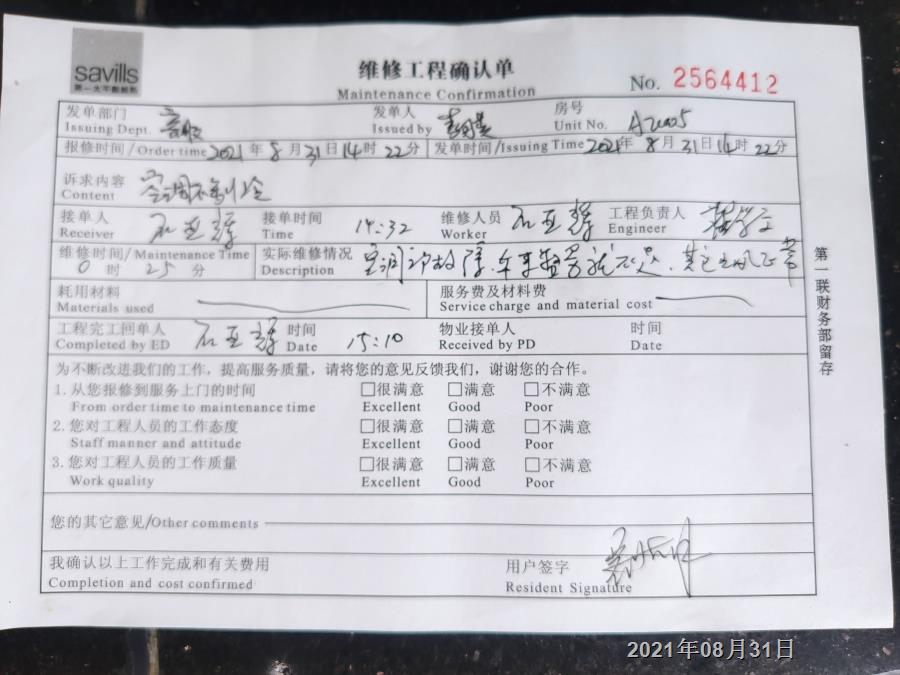 savills
第一太平戴维斯
维修工程确认单
Maintenance Confirmation
No. 2564412
发单部门 发单人 房号
Issuing Dept. 客服 Issued by Unit No.
报修时间/Order time 2021年8月31日14时22分 发单时间/Issuing Time 2021年8月31日14时22分
诉求内容
Content 空调不制冷
接单人 石亚辉 接单时间 14:32 维修人员 石亚辉 工程负责人
Receiver Time Worker Engineer
维修时间/Maintenance Time 实际维修情况
0时25分 Description 空调
耗用材料 服务费及材料费
Materials used Service charge and material cost
工程完工回单人 石亚辉 时间 15:10 物业接单人 时间
Completed by ED Date Received by PD Date
为不断改进我们的工作，提高服务质量，请将您的意见反馈我们，谢谢您的合作。
1.从您报修到服务上门的时间 □很满意 □满意 □不满意
From order time to maintenance time Excellent Good Poor
2.您对工程人员的工作态度 □很满意 □满意 □不满意
Staff manner and attitude Excellent Good Poor
3.您对工程人员的工作质量 □很满意 □满意 □不满意
Work quality Excellent Good Poor
您的其它意见/Other comments
我确认以上工作完成和有关费用 用户签字
Completion and cost confirmed Resident Signature
第一联财务部留存
2021年08月31日